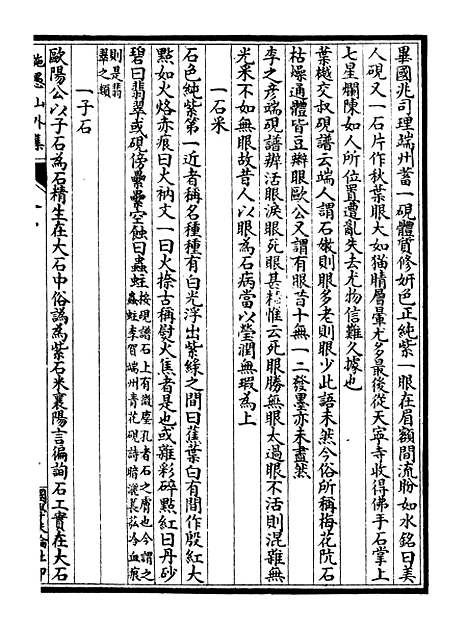 畢國兆司理端州蓄一硯體質修妍色正純紫一眼在眉額間流盼如水銘曰美
人硯又一石片作秋葉眼大如猫睛層暈尤多最後從天寧寺收得佛手石掌上
七星爛陳如人所位置遭亂失去尤物信難久據也
葉樾交叔硯譜云端人謂石嫩則眼多老則眼少此語未然今俗所稱梅花阬石
枯燥通體皆豆瓣眼歐公又謂有眼者十無一二發墨亦未盡然
李之彦端硯譜辨活眼淚眼死眼甚精惟云死眼勝無眼太過眼不活則混雜無
光采不如無眼故昔人以眼為石病當以瑩潤無瑕為上
一石采
石色純紫第一近者稱名種種有白光浮出紫綠之間曰蕉葉白有間作殷紅大
點如火烙赤痕曰火衲文一曰火捺古稱熨火焦者是也或雜彩碎點紅曰丹砂
碧曰翡翠或硯傍纍纍空蝕曰蟲蛀按硯譜石上有微塵孔者石之膚也今謂之
蟲蛀李賀端州青花硯詩暗灑萇弘冷血痕
則是翡
翠之類
一子石
歐陽公以子石為石精生在大石中俗譌為紫石米襄陽言徧詢石工實在大石
施愚山外集